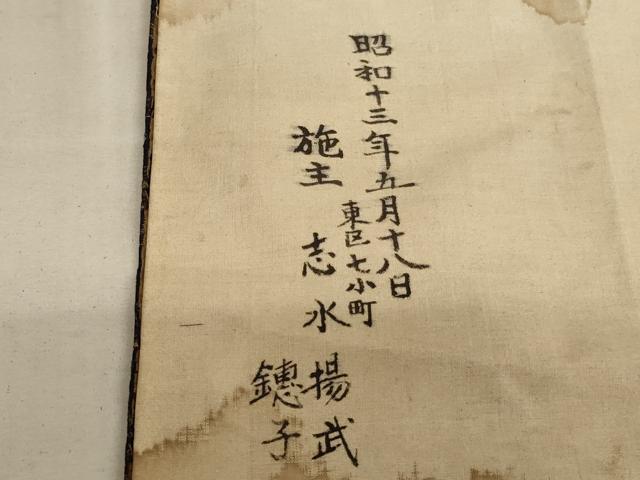 昭和十三年五月十八日
東区七小町
施主 志水 揚武
鏸子